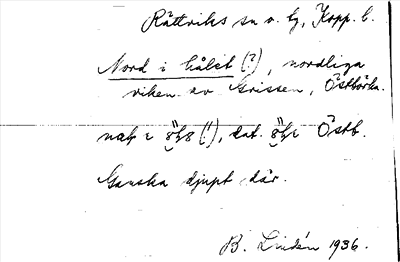 Rättviks sn o. tg, Kopp. l.
Nord i hålet (?), nordliga
viken av Grissen, Östbörka.
Östb.
Ganska djupt där.
B. Lindén 1936.